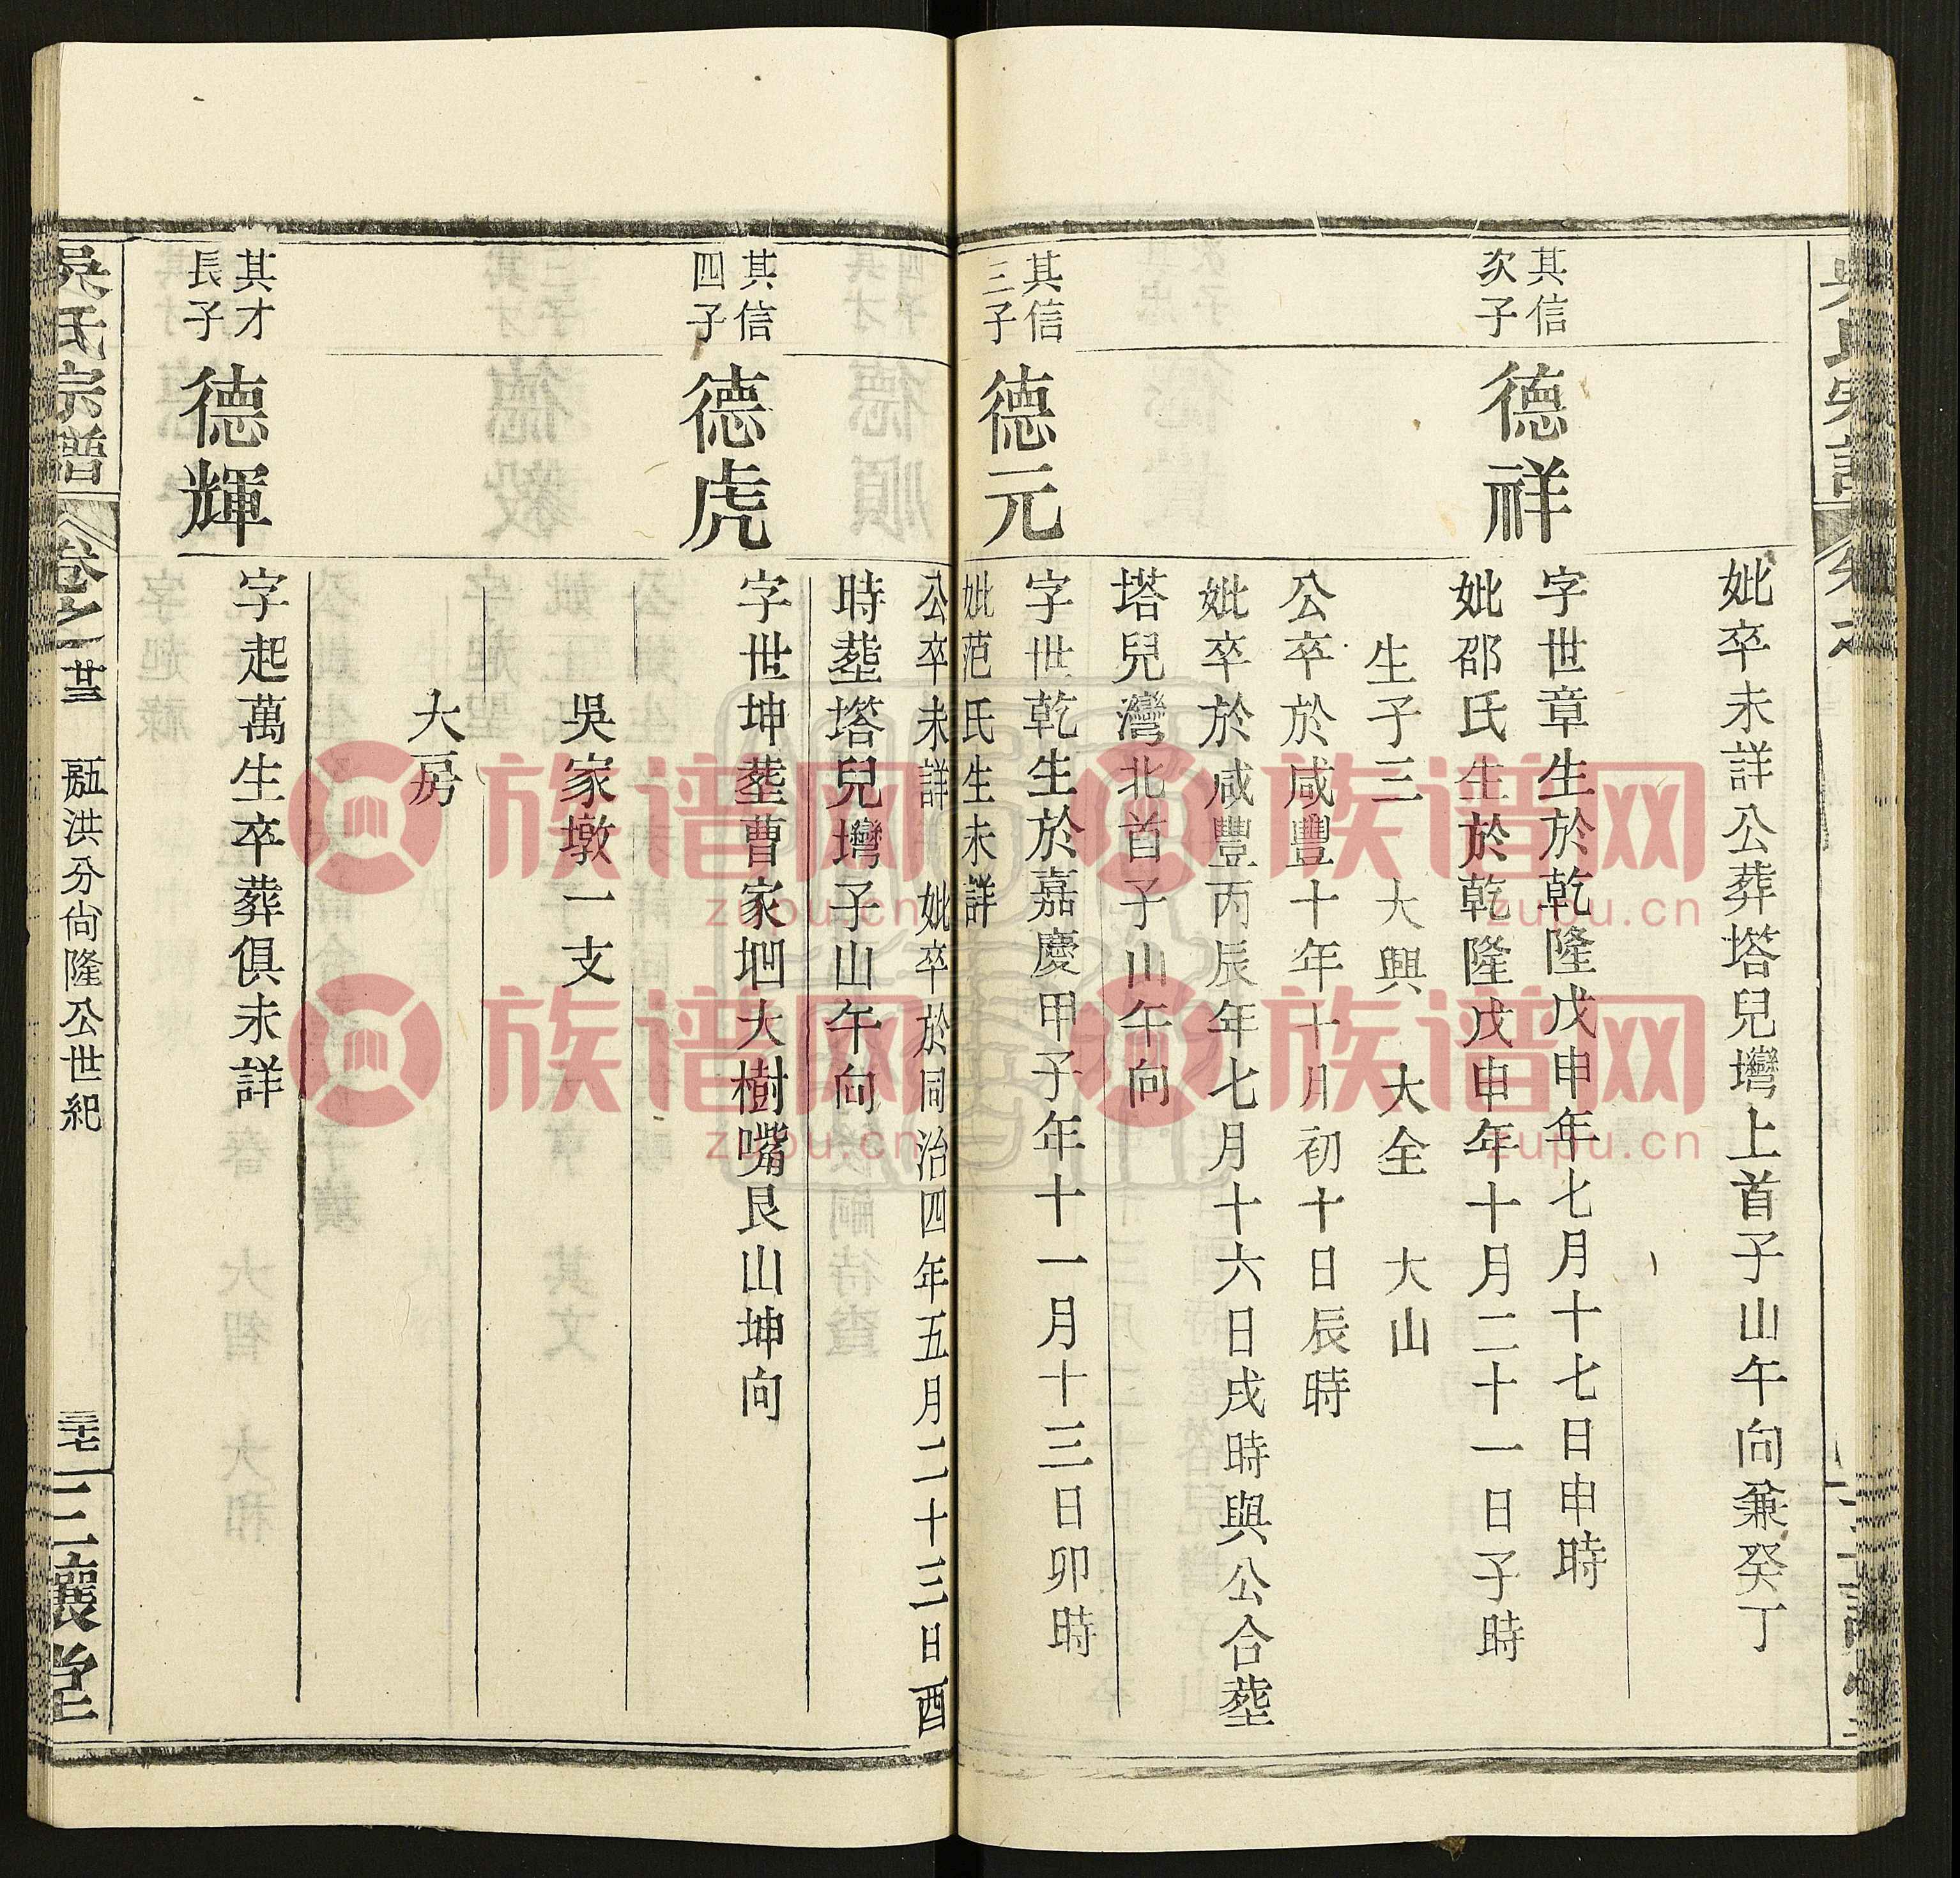 妣卒未詳公葬塔兒灣上首子山午向兼癸丁
其信
次子
德祥
字世章生於乾隆戊申年七月十七日申時
妣邵氏生於乾隆戊申年十月二十一日子時
生子三 大興 大全 大山
公卒於咸豐十年十月初十日辰時
妣卒於咸豐丙辰年七月十六日戌時與公合塟
塔兒灣北首子山午向
其信
三子
德元
字世乾生於嘉慶甲子年十一月十三日卯時
妣范氏生未詳
公卒未詳 妣卒於同治四年五月二十三日酉
時塟塔兒灣子山午向
其信
四子
德虎
字世坤塟曹家坳大樹嘴艮山坤向
吳家墩一支
大房
其才
長子
德輝
字起萬生卒葬俱未詳
吳氏宗譜
卷之
廿三
洪分尙隆公世紀
三十七
三讓堂
族谱网
zupu.cn
族谱网
zupu.cn
族谱网
zupu.cn
族谱网
zupu.cn